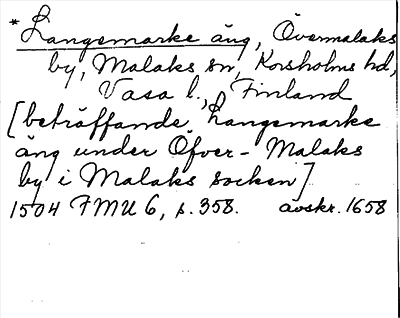 * Langemarke äng, Övermalaks
by, Malaks sn, Korsholms hd,
Vasa l., Finland
[beträffande Langemarke
äng under Öfver-Malaks
by i Malaks socken]
1504 FMU 6, s. 358. avskr. 1658